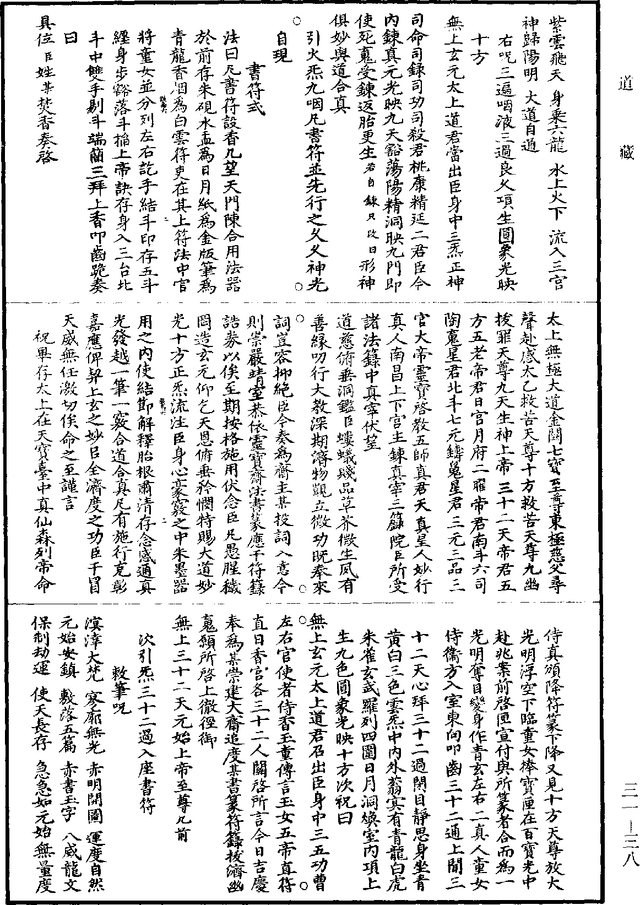 道藏
紫雲飛天 身乘六龍 水上火下 流入三宮
神歸陽明 大道自通
右咒三遍咽液三過良久項生圓象光映
十方
無上玄元太上道君當出臣身中三炁正神
司命司錄司功司殺君桃康精延二君臣今
內鍊真元光映九天豁蕩陽精洞映九門即
使死魂受鍊返胎更生若自鍊只改曰形神
俱妙與道合真
引火炁九咽凡書符並先行之久久神光
自現
書符式
法曰凡書符設香几望天門陳合用法器
於前存朱硯水盂為日月紙為金版筆為
青龍香烟為白雲符吏在其上符法中官
將童女並分列左右訖手結斗印存五斗
纏身步豁落斗搯上帝訣存身入三台北
斗中雙手剔斗端簡三拜上香叩齒跪奏
曰
具位臣姓某焚香奏啓
太上無極大道金闕七寶至尊東極慈父尋
聲赴感太乙救苦天尊十方救苦天尊九幽
拔罪天尊九天生神上帝三十二天帝君五
方五老帝君日宮月府二曜帝君南斗六司
陶魂星君北斗七元鑄魂星君三元三品三
官大帝靈寶啓教五師真君天真皇人妙行
真人南昌上下宮主鍊真宰三籙院臣所受
諸法籙中真宰伏望
道慈俯垂洞鑑臣螻蟻賤品草芥微生夙有
善緣叨行大教深期濟物觀立微功既奉來
詞豈容抑絕臣今奏為齋主某投詞入意今
則崇嚴靖室恭依靈寶齋法書篆應干符籙
誥券以俟至期按格施用伏念臣凡愚腥穢
罔造玄元仰乞天恩俯垂矜憫特賜大道妙
光十方正炁流注臣身心豪竅之中朱墨器
用之內使結節解釋胎根肅清存念感通真
光發越一筆一竅合道合真凡有施行克彰
嘉應俾昇上玄之妙臣全濟度之功臣干冒
天威無任激切俟命之至謹言
祝畢存太上在天寶臺中真仙森列帝命
侍真頒降符篆下降又見十方天尊放大
光明浮空下臨童女捧寶匣在百寶光中
赴兆案前啓匣宣付與所篆者合而為一
光明奪目變身作青玄左右二真人童女
侍衛方入室東向叩齒三十二通上聞三
十二天心拜三十二過閉目靜思身坐青
黃白三色雲炁中內外蓊冥有青龍白虎
朱雀玄武羅列四圍日月洞煥室內項上
生九色圓象光映十方次祝曰
無上玄元太上道君召出臣身中三五功曹
左右官使者侍香玉童傳言玉女五帝直符
直日香官各三十二人關啓所言今日吉慶
奉為某崇建大齋追度某書篆符籙拔濟幽
魂願所啓上徹徑御
無上三十二天元始上帝至尊几前
次引炁三十二過入座書符
敕筆咒
溟涬大梵 寥廓無光 赤明開圖 運度自然
元始安鎮 敷落五篇 赤書玉字 八威龍文
保制劫運 使天長存 急急如元始無量度
三一—三八